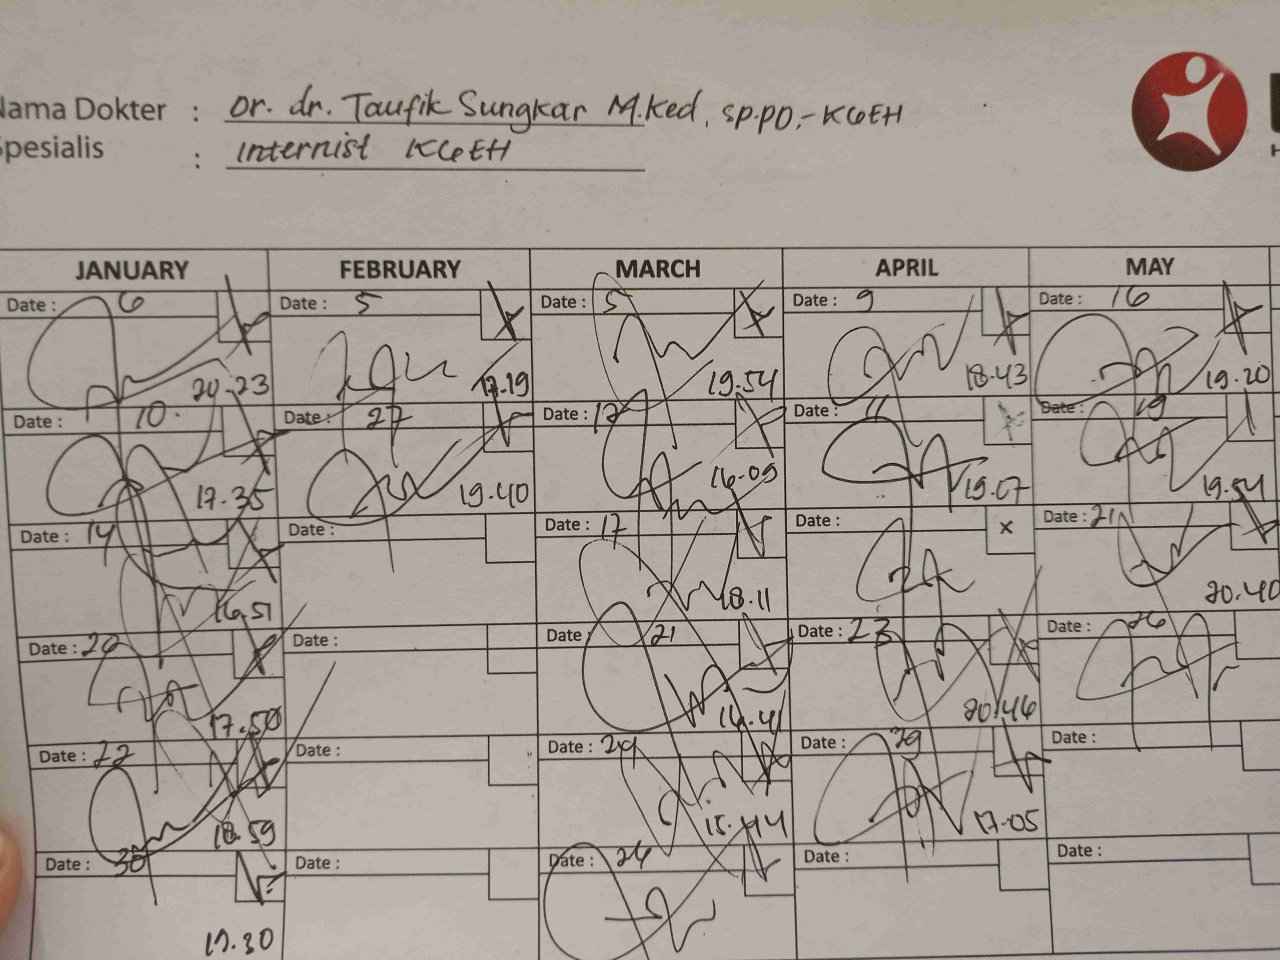 Nama Dokter : Dr. dr. Taufik Sungkar M.Ked, SP.PD,-KGEH
Spesialis : Internist KGEH
H
JANUARY FEBRUARY MARCH APRIL MAY
Date : 6 Date : 5 Date : 5 Date : 9 Date : 16
20.23 17.19 19.54 18.43 19.20
Date : 10 Date : 27 Date : 12 Date : 11 Date : 19
17.35 19.40 16.09 19.07 19.54
Date : 14 Date : Date : 17 Date : x Date : 21
16.51 18.11 20.40
Date : 20 Date : Date 21 Date : 23 Date : 26
17.50 16.41 20.46
Date : 22 Date : Date : 24 Date : 29 Date :
18.59 15.44 17.05
Date : 30 Date : Date : 26 Date : Date :
17.30